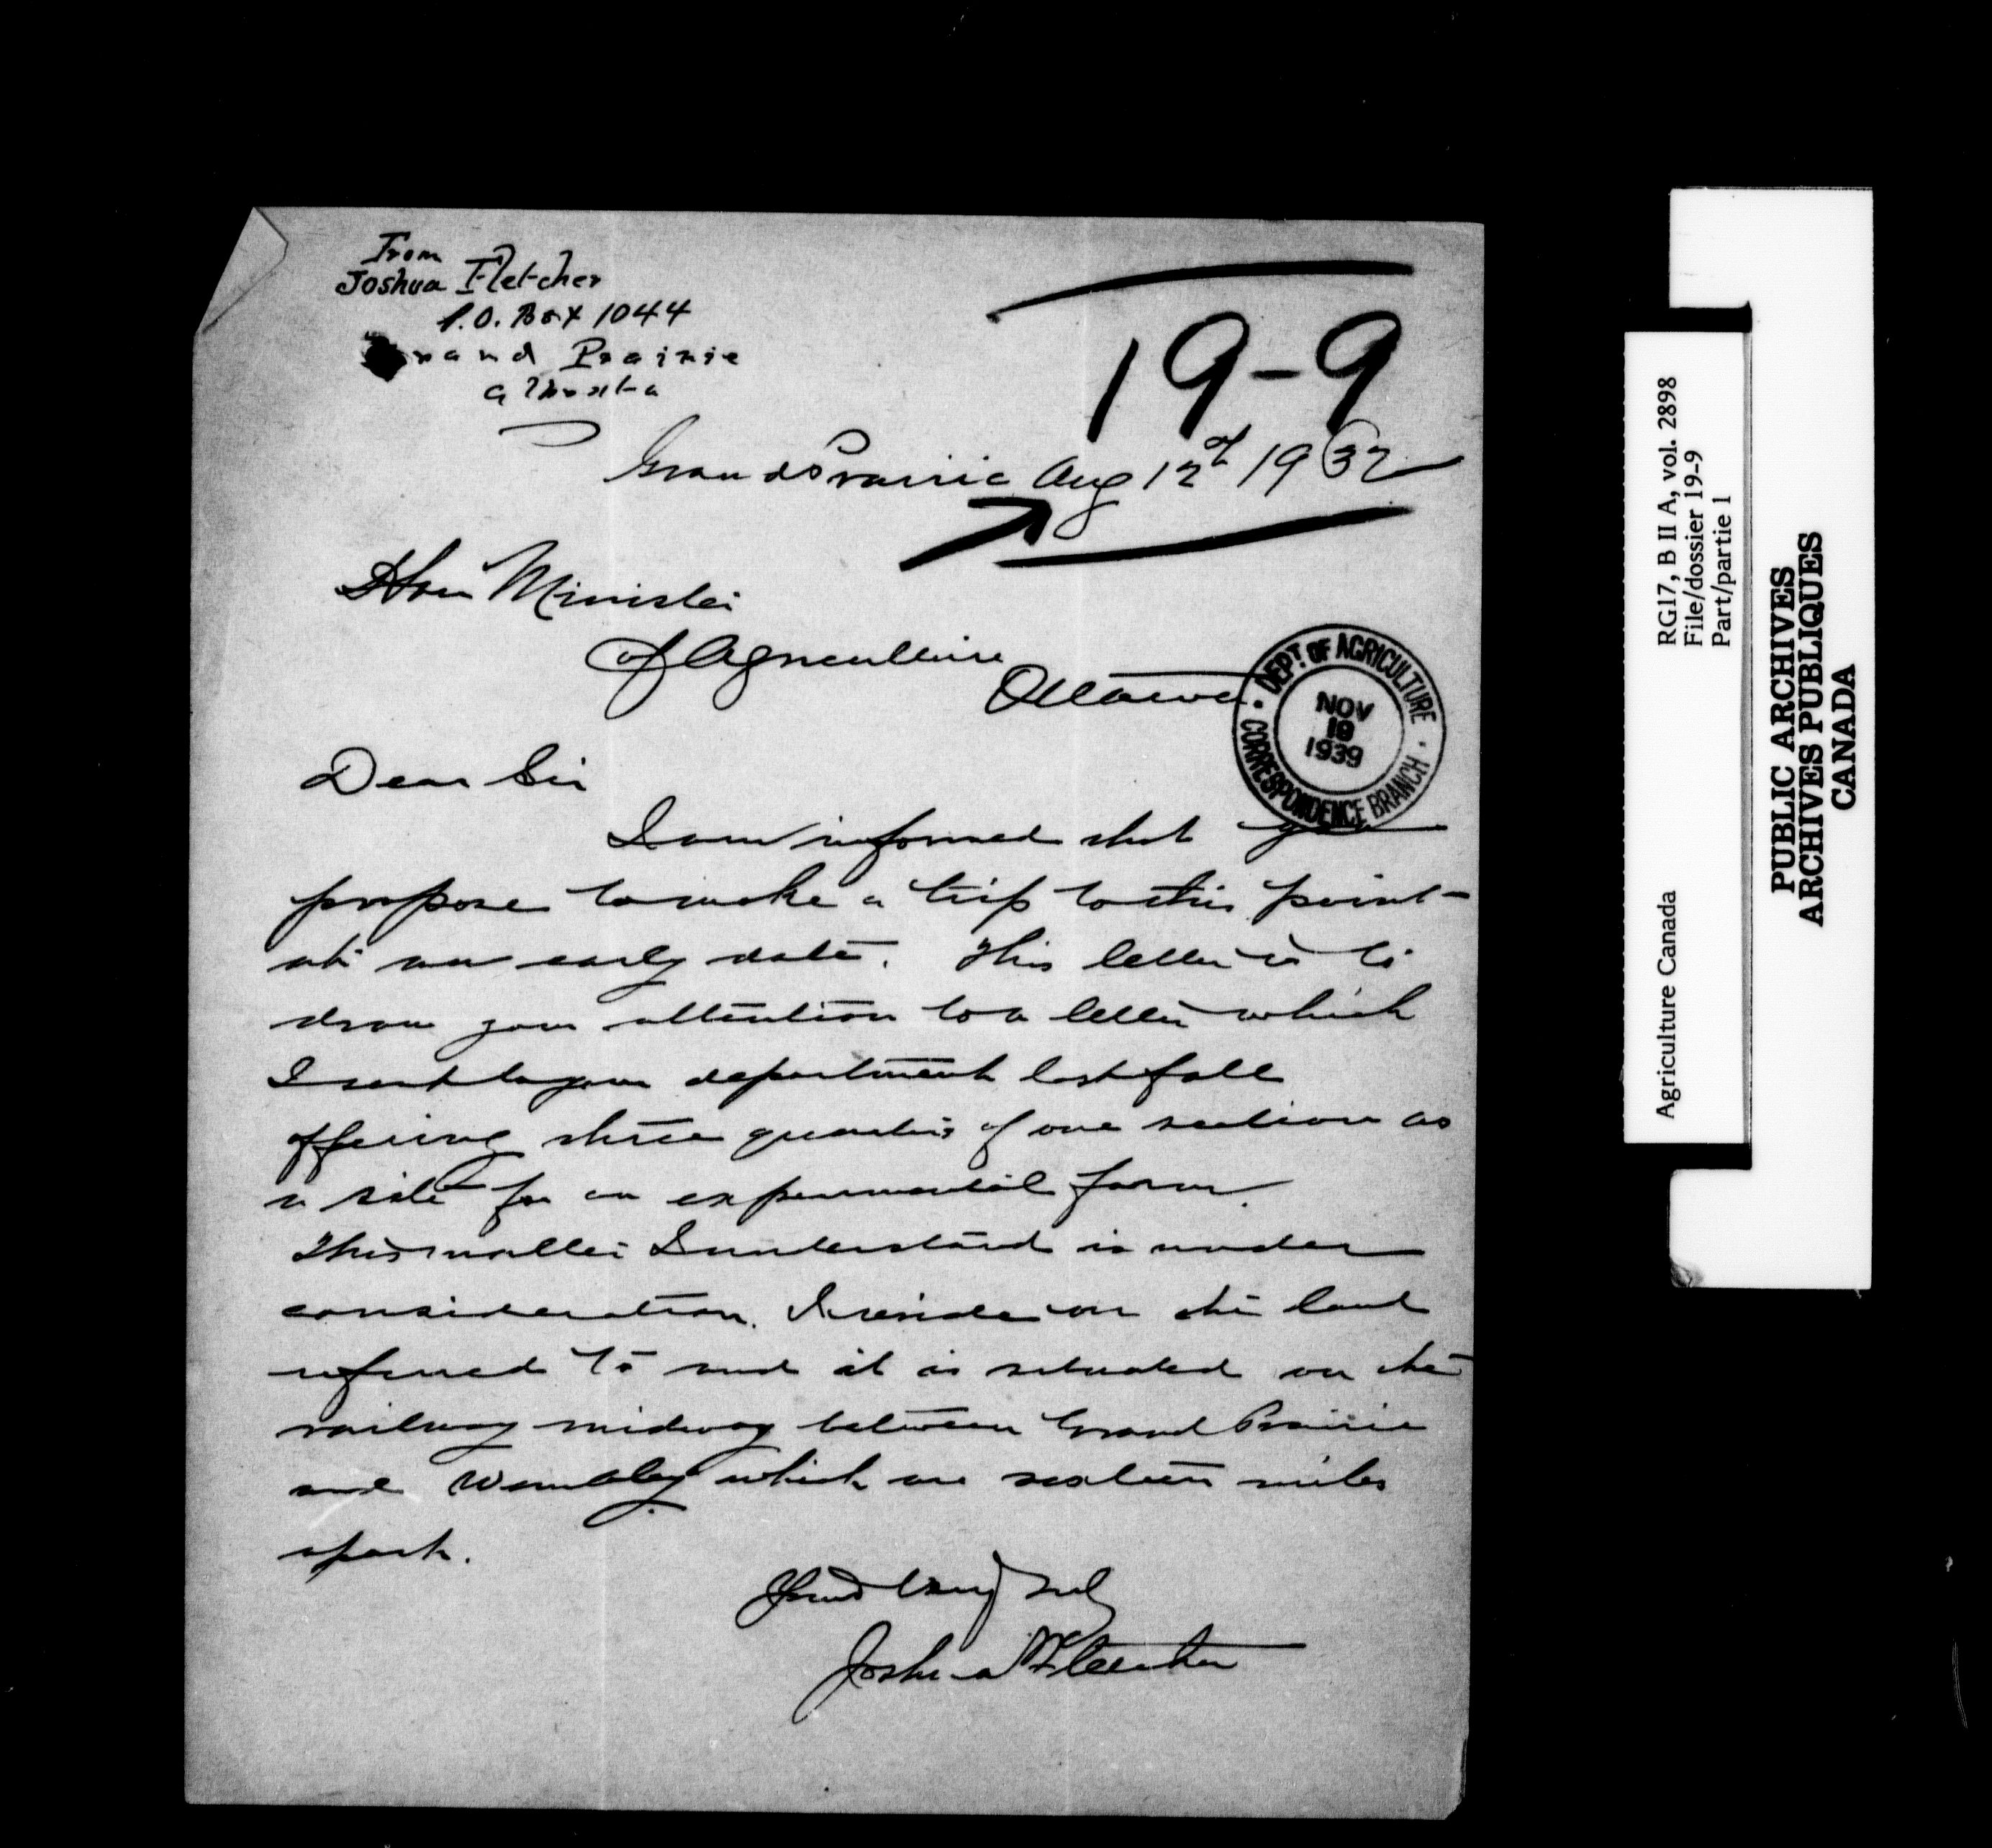 From
Joshua Fletcher
P.O. Box 1044
Grand Prairie
Alberta
19-9
Grand Prairie Aug 12th 1932
Hon Minister
of Agriculture
Ottawa
DEPT. OF AGRICULTURE
NOV
19
1939
CORRESPONDENCE BRANCH
Dear Sir
I am informed that you
propose to make a trip to this point
at an early date. This letter is to
draw your attention to a letter which
I sent to your department last fall
offering three quarters of one section as
a site for an experimental farm.
This matter I understand is under
consideration. I reside on the land
referred to and it is situated on the
railway midway between Grand Prairie
and Wembley which are sixteen miles
apart.
Yours truly
Joshua Fletcher
RG17, B II A, vol. 2898
File/dossier 19-9
Part/partie 1
Agriculture Canada
PUBLIC ARCHIVES
ARCHIVES PUBLIQUES
CANADA